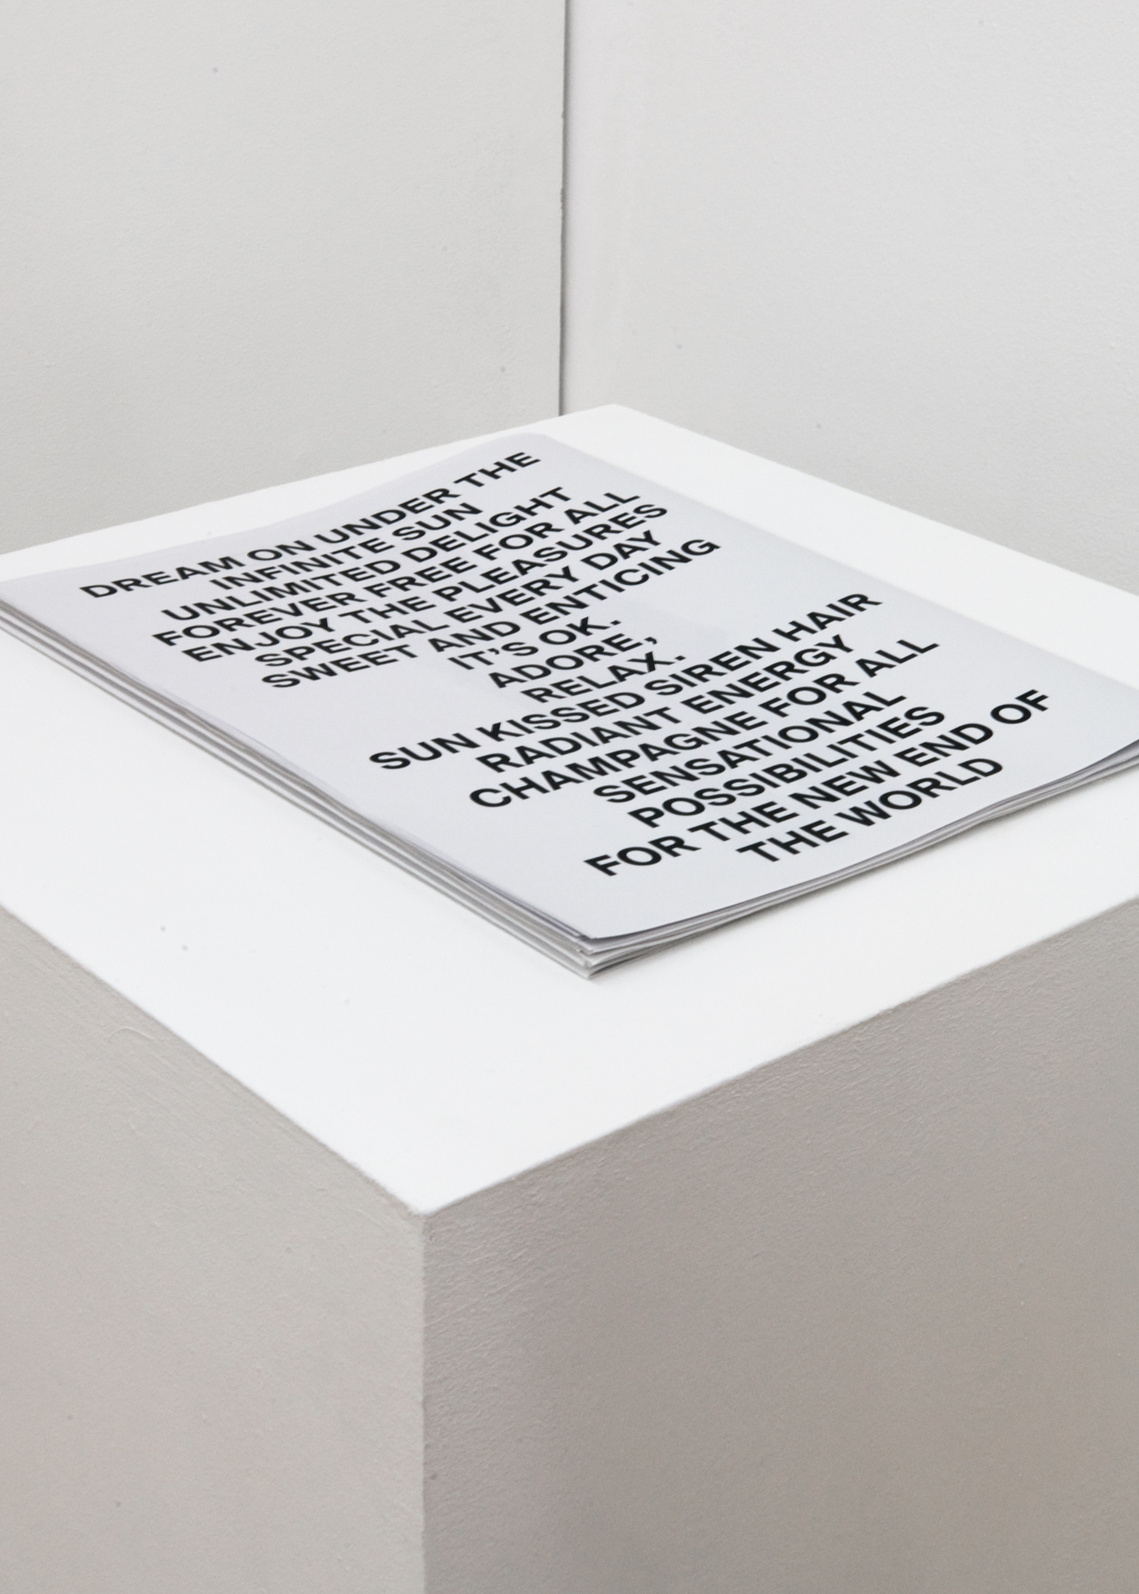 DREAM ON UNDER THE
INFINITE SUN
UNLIMITED DELIGHT
FOREVER FREE FOR ALL
ENJOY THE PLEASURES
SPECIAL EVERY DAY
SWEET AND ENTICING
IT'S OK.
ADORE,
RELAX.
SUN KISSED SIREN HAIR
RADIANT ENERGY
CHAMPAGNE FOR ALL
SENSATIONAL
POSSIBILITIES
FOR THE NEW END OF
THE WORLD